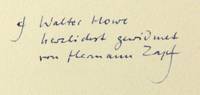 Walter Howe
herzlichst gewidmet
von Hermann Zapf